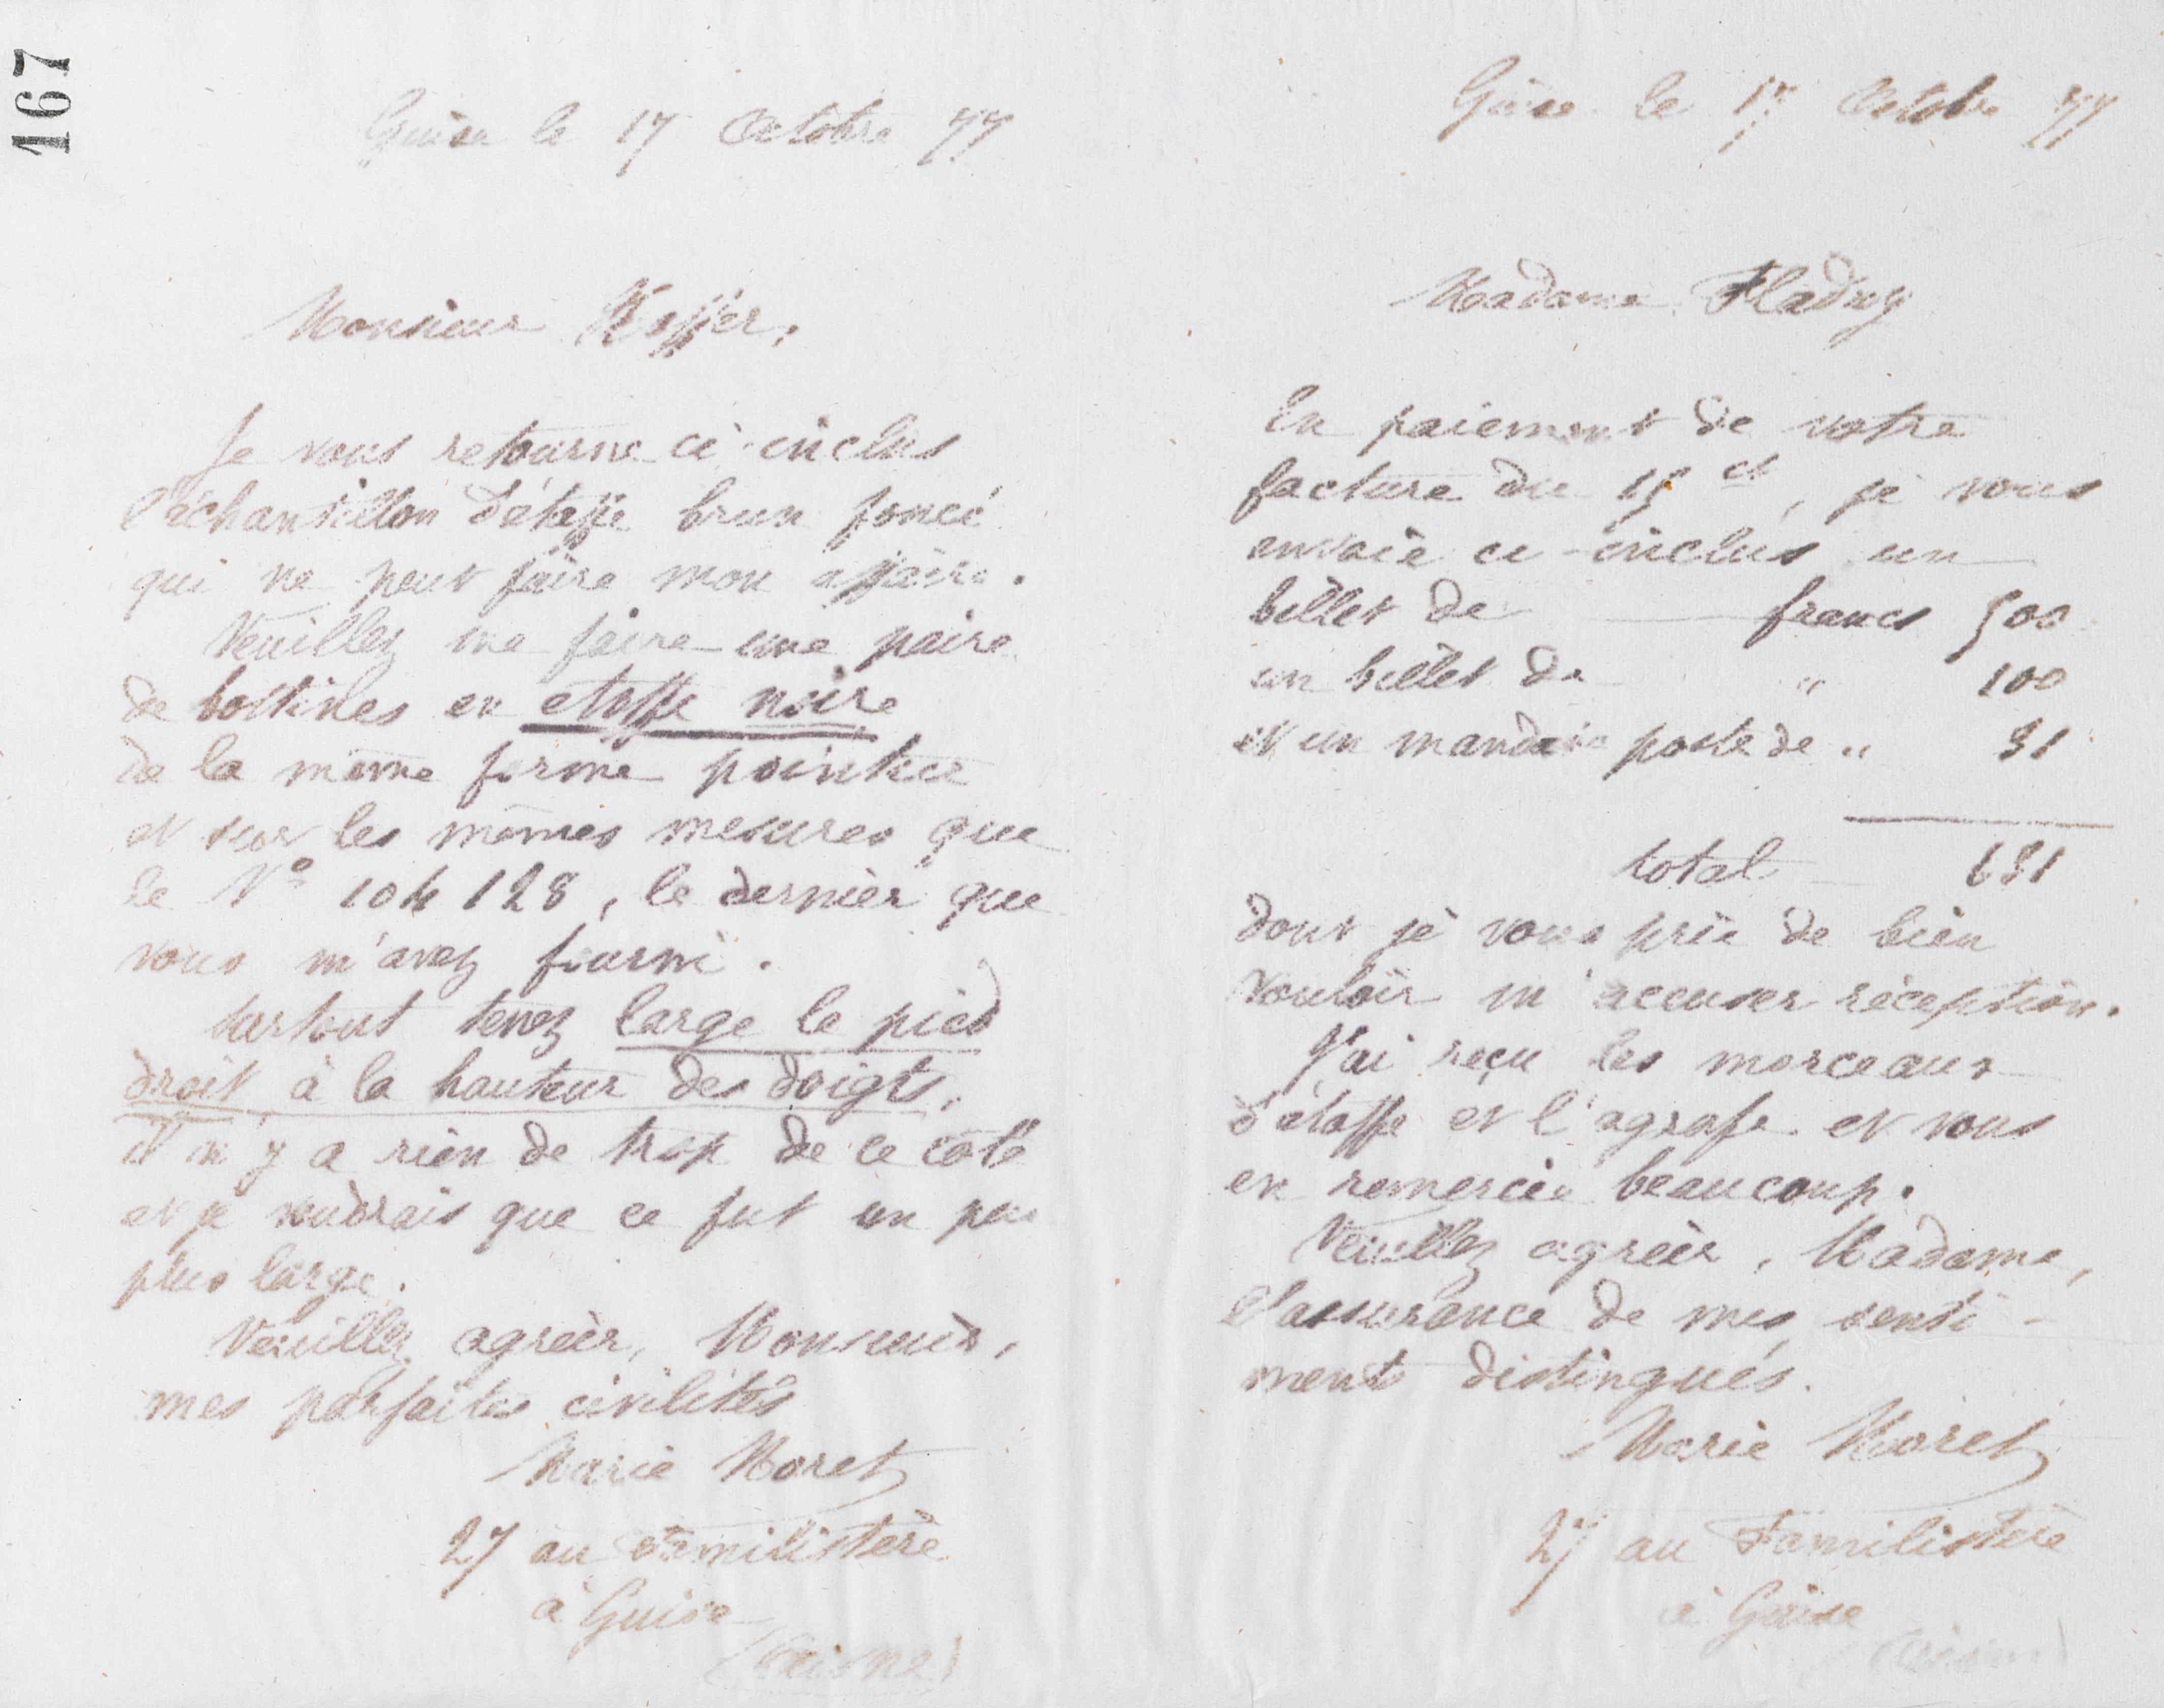 167
Guise le 17 Octobre 77
Monsieur
Je vous retourne ci-inclus
l'échantillon d'étoffe brun foncé
qui ne peut faire mon affaire.
Veuillez me faire une paire
de bottines en etoffe noire
de la même forme pointue
et sur les mêmes mesures que
le No 104128, le dernier que
vous m'avez fourni.
Surtout tenez large le pied
droit à la hauteur des doigts,
il n'y a rien de trop de ce côté
et je voudrais que ce fut un peu
plus large.
Veuillez agréer, Monsieur,
mes parfaites civilités
Marie Moret
27 au Familistère
à Guise
(Aisne)
Guise le 17 Octobre 77
Madame Fladry
En paiement de votre
facture du 15 ct, je vous
envoie ci-inclus un
billet de francs 500
un billet de " 100
et un mandat poste de " 31
total 631
dont je vous prie de bien
vouloir m'accuser réception.
J'ai reçu les morceaux
d'étoffe et l'agrafe et vous
en remercie beaucoup.
Veuillez agréer, Madame,
l'assurance de mes senti-
ments distingués.
Marie Moret
27 au Familistère
à Guise
(Aisne)